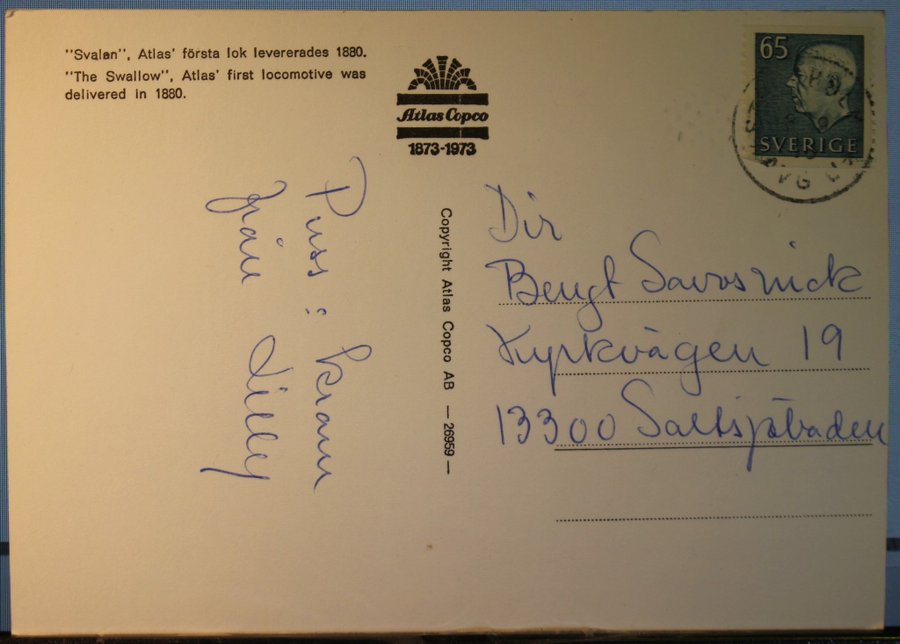 "Svalan", Atlas' första lok levererades 1880.
"The Swallow", Atlas' first locomotive was
delivered in 1880.
Atlas Copco
1873-1973
65
SVERIGE
Puss & kram
från Lilly
Copyright Atlas Copco AB — 26959 —
Dir
Bengt Savosnick
Kyrkvägen 19
13300 Saltsjöbaden